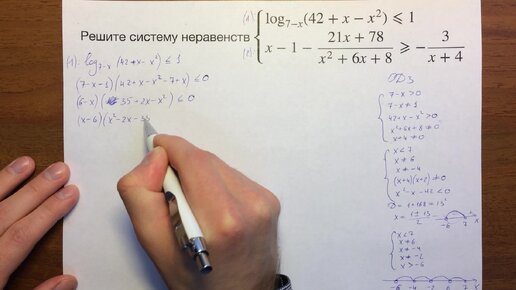 Решите систему неравенств
(1): log_{7-x}(42 + x - x²) ⩽ 1
(2): x - 1 - (21x + 78)/(x² + 6x + 8) ⩾ -3/(x + 4)
(1): log_{7-x}(42+x-x²) ≤ 1
(7-x-1)(42+x-x²-7+x) ≤ 0
(6-x)(35+2x-x²) ≤ 0
(x-6)(x²-2x-35
ОДЗ
7-x>0
7-x≠1
42+x-x²>0
x²+6x+8≠0
x+4≠0
x<7
x≠6
x≠-4
(x+4)(x+2)≠0
x²-x-42<0
D=1+168=13²
x=(1±13)/2
-6 7 x
x<7
x≠6
x≠-4
x≠-2
x>-6
-6 -4 -2 6 7 x